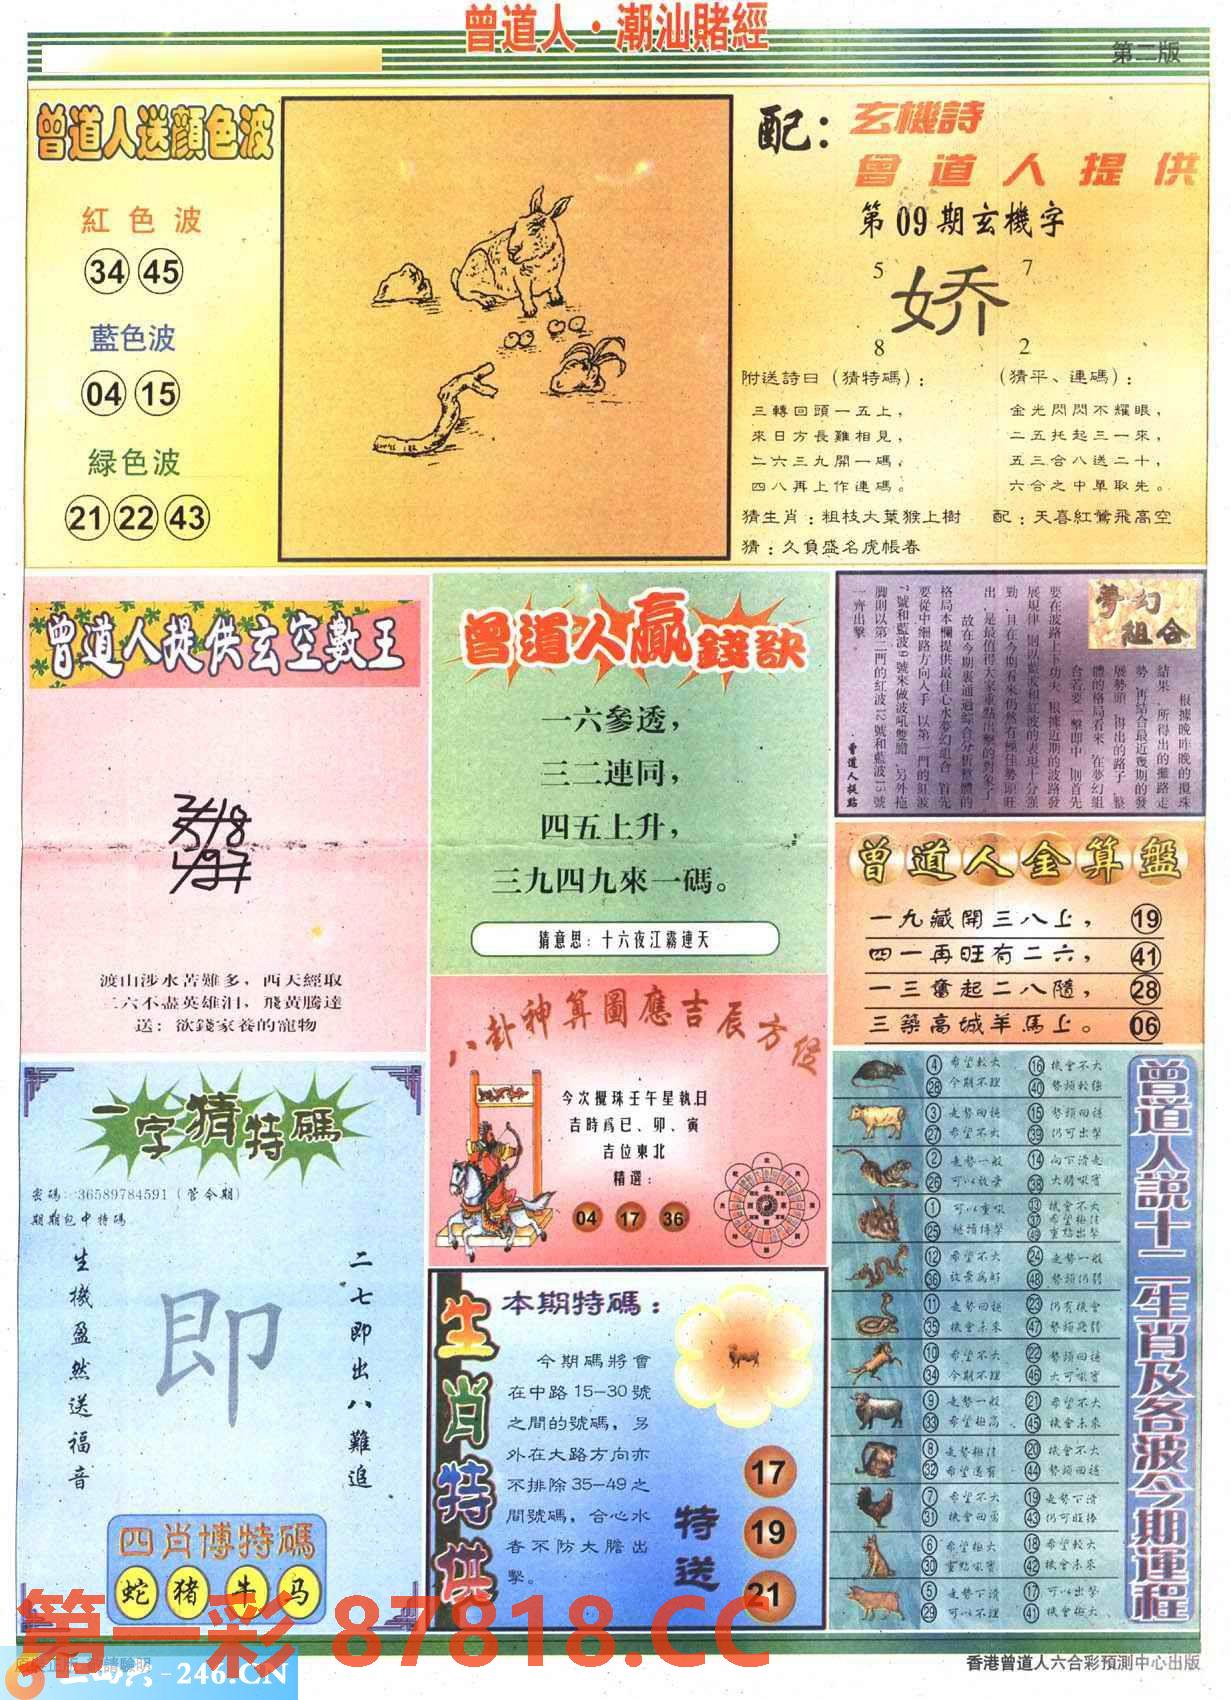 曾道人·潮汕賭經
第二版
曾道人送顏色波
紅色波
34 45
藍色波
04 15
綠色波
21 22 43
配：
玄機詩
曾道人提供
第09期玄機字
5 7
娇
8 2
附送詩曰（猜特碼）：
三轉回頭一五上，
來日方長難相見，
二六三九開一碼，
四八再上作連碼。
（猜平、連碼）：
金光閃閃不耀眼，
二五托起三一來，
五三合八送二十，
六合之中單取先。
猜生肖：粗枝大葉猴上樹
配：天喜紅鶯飛高空
猜：久負盛名虎帳春
曾道人提供玄空數王
渡山涉水苦難多，西天經取
二六不盡英雄淚，飛黃騰達
送：欲錢家養的寵物
曾道人贏錢訣
一六參透，
三二連同，
四五上升，
三九四九來一碼。
猜意思：十六夜江霧連天
夢幻
組合
根據晚昨晚的攪珠
結果，所得出的攤路走
勢，再結合最近幾期的發
展勢頭，得出的路子，整
體的格局看來，在夢幻組
合若要一擊即中，則首先
要在波路上下功夫，根據近期的波路發
展規律，則以藍波和紅波的表現十分強
勁，且在今期看來仍然有極佳勢頭旺
出，是最值得大家重點出擊的對象了。
故在今期裏通過綜合分析整體的
格局本欄提供最佳心水夢幻組合，首先
要從中細路方向入手，以第一門的紅波
7號和藍波9號來做波吼雙膽，另外拖
脚則以第二門的紅波12號和藍波15號
一齊出擊。
曾道人提點
曾道人金算盤
一九藏開三八上， 19
四一再旺有二六， 41
一三奮起二八隨， 28
三築高城羊馬上。 06
八卦神算圖應吉辰方位
今次攪珠壬午星執日
吉時為巳、卯、寅
吉位東北
精選：
04 17 36
一字猜特碼
密碼：36589784591（管令期）
期期包中特碼
生機盈然送福音
即
二七即出八難追
四肖博特碼
蛇 猪 牛 马
生肖特供
本期特碼：
今期碼將會
在中路15—30號
之間的號碼，另
外在大路方向亦
不排除35—49之
間號碼，合心水
者不防大膽出
擊。
特送
17
19
21
4 希望較大 16 機會不大
28 今期不理 40 勢頭較強
3 走勢回穩 15 勢頭回穩
27 希望不大 39 仍可出擊
2 走勢一般 14 向下滑走
26 可以放棄 38 大膽吼實
1 可以重吼 13 機會不大
25 繼續停擊 37 希望極佳
49 重點出擊
12 希望不大 24 走勢一般
36 放棄為好 48 勢頭仍弱
11 走勢回穩 23 仍有機會
35 機會未來 47 勢頭疲弱
10 希望不大 22 勢頭回穩
34 今期不理 46 大可吼實
9 走勢一般 21 希望不大
33 希望極高 45 機會未來
8 走勢極佳 20 機會不大
32 希望還有 44 勢頭回穩
7 希望不大 19 走勢下滑
31 機會回當 43 仍可旺捧
6 希望極大 18 希望較大
30 重點吼實 42 機會未來
5 走勢下滑 17 可以出擊
29 可以不理 41 機會極大
曾道人説十二生肖及各波今期運程
第一彩 87818.CC
246.CN
香港曾道人六合彩預測中心出版